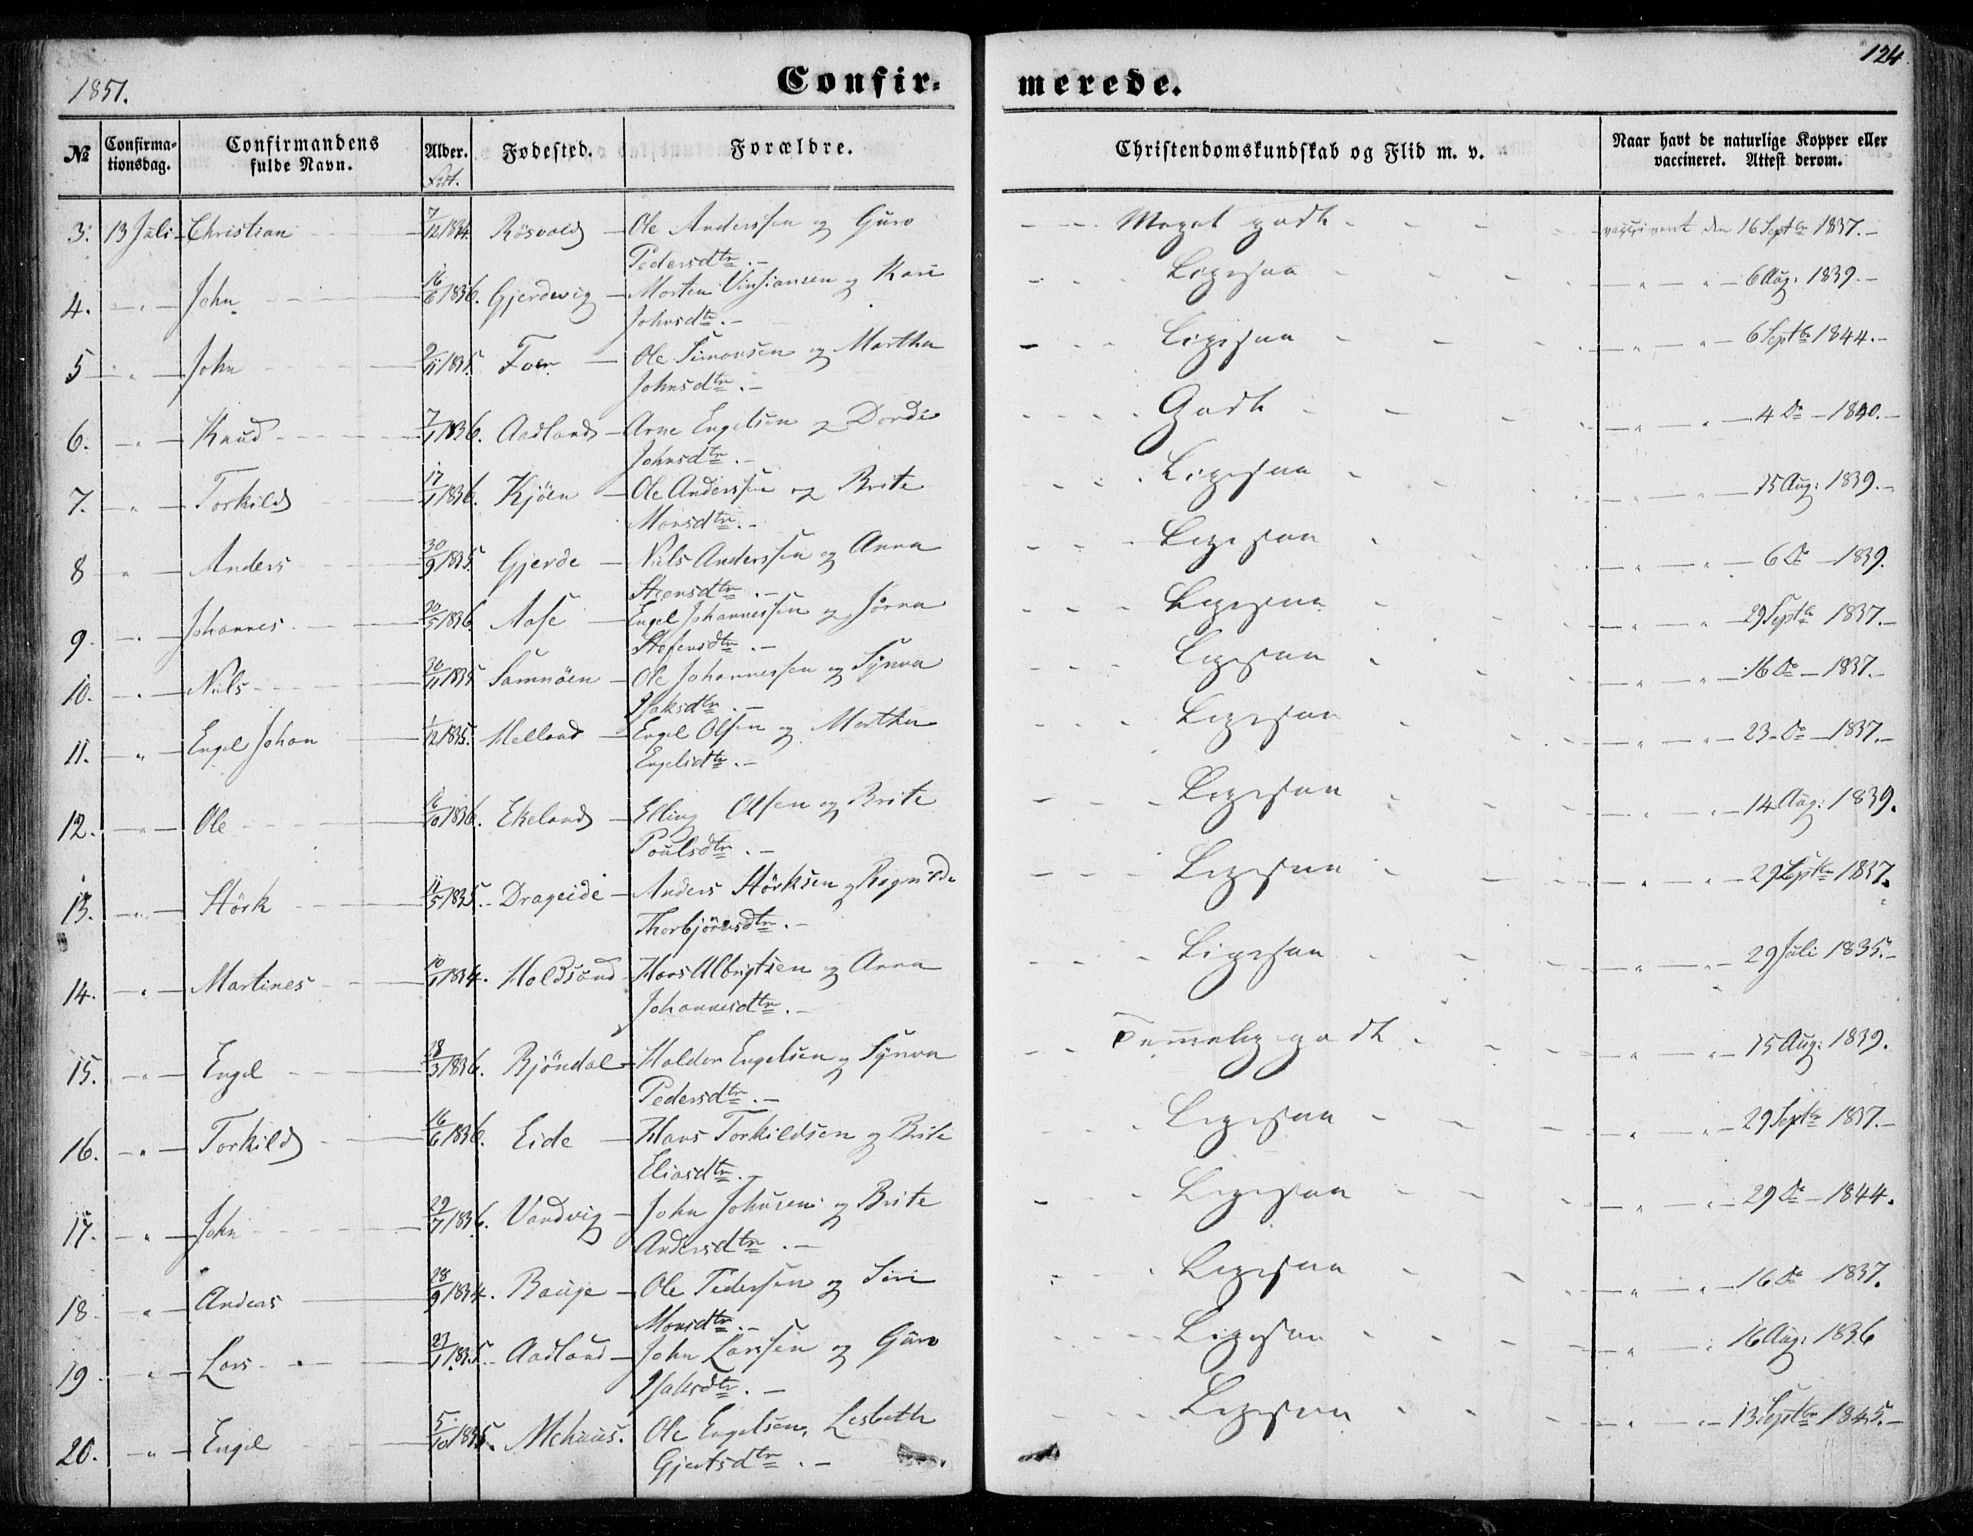 1851.
Confir=
merede.
124
№
Confirma-
tionsdag.
Confirmandens
fulde Navn.
Alder.
Fødested.
Forældre.
Christendomskundskab og Flid m. v.
Naar havt de naturlige Kopper eller
vaccineret. Attest derom.
3. 13 Juli Christian 7/12 1834. Røsvold Ole Anderssen og Guro
Pedersdtr. Meget godt vaccineret den 16 Septbr 1837.
4. " John 16/6 1836. Gjerdevig Morten Vinsiansen og Kari
Johnsdtr. Ligesaa " " 6 Aug: 1839.
5 " John 9/11 1835. Toer Ole Simonsen og Martha
Johnsdtr. Ligesaa " " 6 Septbr 1844.
6. " Knud 7/1 1836. Aadland Arne Engelsen og Dordi
Johnsdtr. Godt " " 4 Do 1840.
7. " Torkild 17/1 1836. Kjöen Ole Anderssen og Brite
Monsdtr. Ligesaa " " 15 Aug: 1839.
8 " Anders 30/9 1835. Gjerde Nils Anderssen og Anna
Steensdtr. Ligesaa " " 6 Do 1839.
9. " Johannes 30/5 1836. Aase Engel Johannessen og Jörna
Stefensdtr. Ligesaa " " 29 Septbr 1837.
10. " Nils 20/11 1835 Samnöen Ole Johannessen og Synva
Isaksdtr. Ligesaa " " 16 Do 1837.
11. " Engel Johan 1/12 1835. Melland Engel Olsen og Martha
Engelsdtr. Ligesaa " " 23 Do 1837.
12. " Ole 16/10 1836. Ekeland Elling Olsen og Brite
Poulsdtr. Ligesaa " " 14 Aug: 1839.
13. " Störk 11/5 1835. Drageide Anders Störksen og Ragnilde
Thorbjörnsdtr. Ligesaa " " 29 Septbr 1837.
14. " Martines 10/1 1834. Holdsund Hans Albrigtsen og Anna
Johannesdtr. Ligesaa " " 29 Juli 1835.
15. " Engel 18/3 1836. Bjöndal Haldor Engelsen og Synva
Pedersdtr. Temmelig godt " " 15 Aug: 1839.
16. " Torkild 16/6 1836. Eide Hans Torkildsen og Brite
Eliasdtr. Ligesaa " " 29 Septbr 1837.
17. " John 29/7 1836. Vandvig John Johnsen og Brite
Andersdtr. Ligesaa " " 29 Do 1844.
18 " Anders 28/9 1834. Bauge Ole Pedersen og Siri
Monsdtr. Ligesaa " " 16 Do 1837.
19 " Lars 23/1 1835 Aadland John Larssen og Guro
Isaksdtr. Ligesaa " " 16 Aug: 1836
20. " Engel 5/10 1835. Mehuus. Ole Engelsen, Lisbeth
Gjertsdtr. Ligesaa " " 13 Septbr 1845.